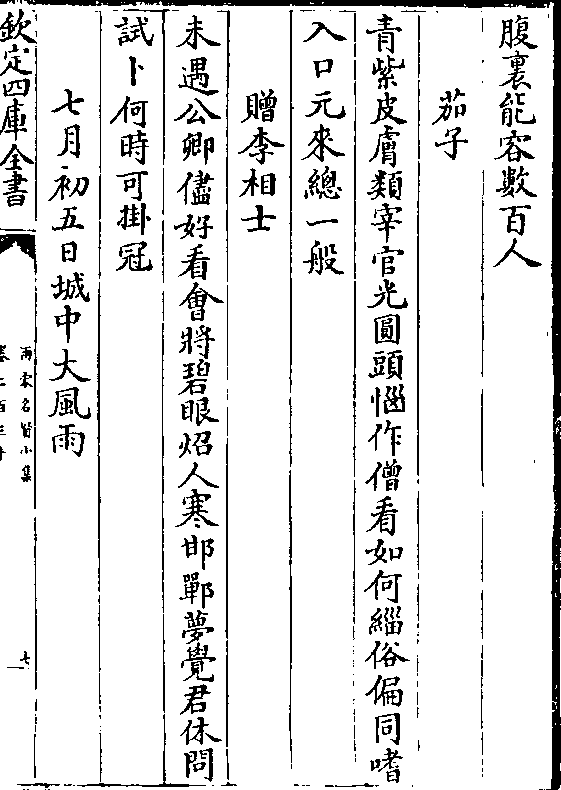 腹裏能容數百人
茄子
青紫皮膚類宰官光圓頭惱作僧看如何緇俗偏同嗜
入口元來總一般
贈李相士
未遇公卿儘好看會將碧眼炤人寒邯鄲夢覺君休問
試卜何時可掛冠
七月初五日城中大風雨
欽定四庫全書
兩宋名賢小集
七